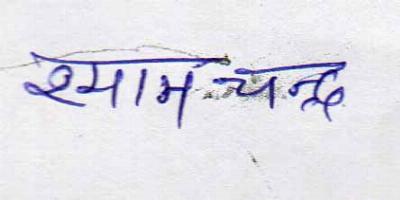 श्याम चन्द्र